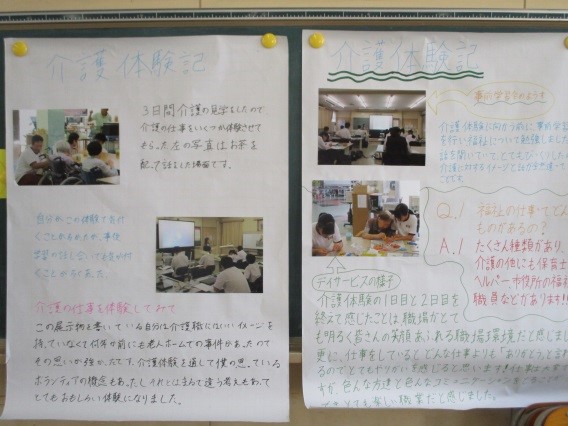 介護体験記
3日間介護の見学をしたので
介護の仕事をいくつか体験させて
もらった左の写真はお茶を
配って話をした場面です。
自分がこの体験で気付
くことがあるためか、事後
学習の話し合いでも気が付
くことがあった。
介護の仕事を体験してみて
この展示物を書いている自分は介護職にはいいイメージを
持っていなくて何年か前にも老人ホームでの事件があったので
その思いが強かったです。介護体験を通して僕の思っている
ボランティアの概念もあったし、それとはまるで違う考えもあって
とてもおもしろい体験になりました。
介護体験記
事前学習会のようす
介護体験に向かう前に事前学習
を行い福祉について勉強しました
話を聞いていて、とても
介護に対するイメージと
ことです。
Q.1 福祉の仕事ってどん
ものがあるの?
A.1 たくさん種類があり、
介護の他にも保育士
ヘルパー、市役所の福祉
職員などがあります!!
デイサービスの様子
介護体験の1日目と2日目を
終えて感じたことは職場がとて
も明るく皆さんの笑顔あふれる職場環境だと感じまし
更に、仕事をしているとどんな仕事よりも「ありがとう」と言わ
れるのでとてもヤリがいを感じると思います
すが、色んな方達と色んなコミュニケーションを
職業だと感じました。